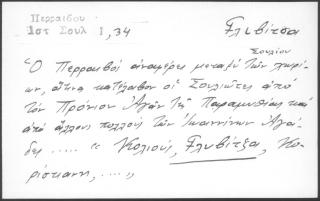 Περραιβου
Ιστ Σουλ I, 34
Γλυβίτσα
Σουλίου
"Ὁ Περραιβος ἀναφέρει μεταξὺ τῶν χωρί-
ων, ἅτινα κατέλαβον οἱ Σουλιῶτες ἀπὸ
τὸν Πρόνιον Ἀγᾶν τῆς Παραμυθίας καὶ
ἀπὸ ἄλλους πολλοὺς τῶν Ἰωαννίνων Ἀγά-
δες ..... " Κολιούς, Γλυβίτζα, Κο-
ρίστιανη, .... "